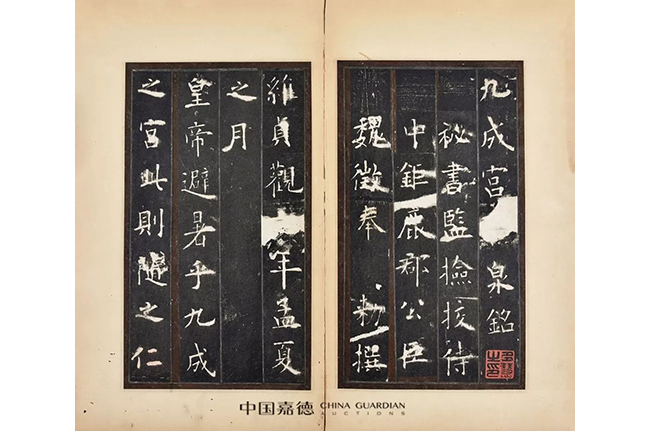 九成宮 泉銘
祕書監撿挍侍
中鉅鹿郡公臣
魏徵奉 勅撰
維貞觀 年孟夏
之月
皇帝避暑乎九成
之宮此則隨之仁
中国嘉德 CHINA GUARDIAN
AUCTIONS